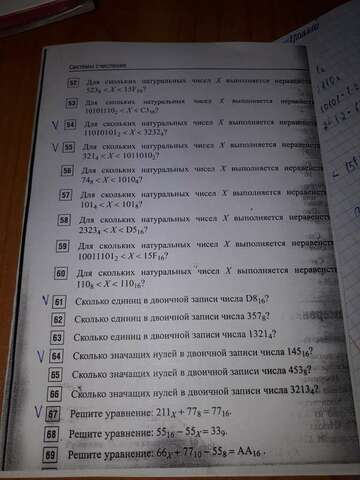 Системы счисления
52 Для скольких натуральных чисел X выполняется неравенство
523₈ < X < 15F₁₆?
53 Для скольких натуральных чисел X выполняется неравенство
10101110₂ < X < C3₁₆?
54 Для скольких натуральных чисел X выполняется неравенств
11010101₂ < X < 3232₄?
55 Для скольких натуральных чисел X выполняется неравенств
321₄ < X < 1011010₂?
56 Для скольких натуральных чисел X выполняется неравенст
74₈ < X < 1010₄?
57 Для скольких натуральных чисел X выполняется неравенст
101₄ < X < 101₈?
58 Для скольких натуральных чисел X выполняется неравенст
2323₄ < X < D5₁₆?
59 Для скольких натуральных чисел X выполняется неравенст
10011101₂ < X < 15F₁₆?
60 Для скольких натуральных чисел X выполняется неравенств
110₈ < X < 110₁₆?
V 61 Сколько единиц в двоичной записи числа D8₁₆?
62 Сколько единиц в двоичной записи числа 357₈?
63 Сколько единиц в двоичной записи числа 1321₄?
V 64 Сколько значащих нулей в двоичной записи числа 145₁₆?
65 Сколько значащих нулей в двоичной записи числа 453₈?
66 Сколько значащих нулей в двоичной записи числа 3213₄?
V 67 Решите уравнение: 211ₓ + 77₈ = 77₁₆.
68 Решите уравнение: 55₁₆ – 55ₓ = 33₉.
69 Решите уравнение: 66ₓ + 77₁₀ – 55₈ = AA₁₆.